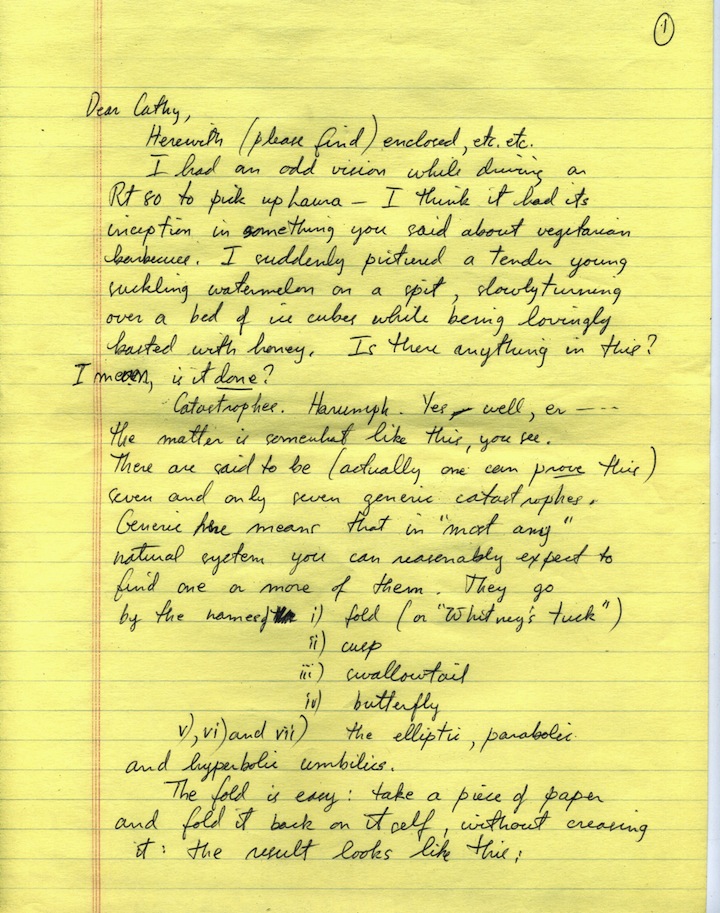 1
Dear Cathy,
Herewith (please find) enclosed, etc. etc.
I had an odd vision while driving on
Rt 80 to pick up Laura – I think it had its
inception in something you said about vegetarian
barbecue. I suddenly pictured a tender young
suckling watermelon on a spit, slowly turning
over a bed of ice cubes while being lovingly
basted with honey. Is there anything in this?
I mean, is it done?
Catastrophes. Harumph. Yes, well, er ----
the matter is somewhat like this, you see.
There are said to be (actually one can prove this)
seven and only seven generic catastrophes.
Generic here means that in "most any"
natural system you can reasonably expect to
find one or more of them. They go
by the names of i) fold (or "Whitney's tuck")
ii) cusp
iii) swallowtail
iv) butterfly
v), vi) and vii) the elliptic, parabolic
and hyperbolic umbilics.
The fold is easy: take a piece of paper
and fold it back on itself, without creasing
it: the result looks like this: